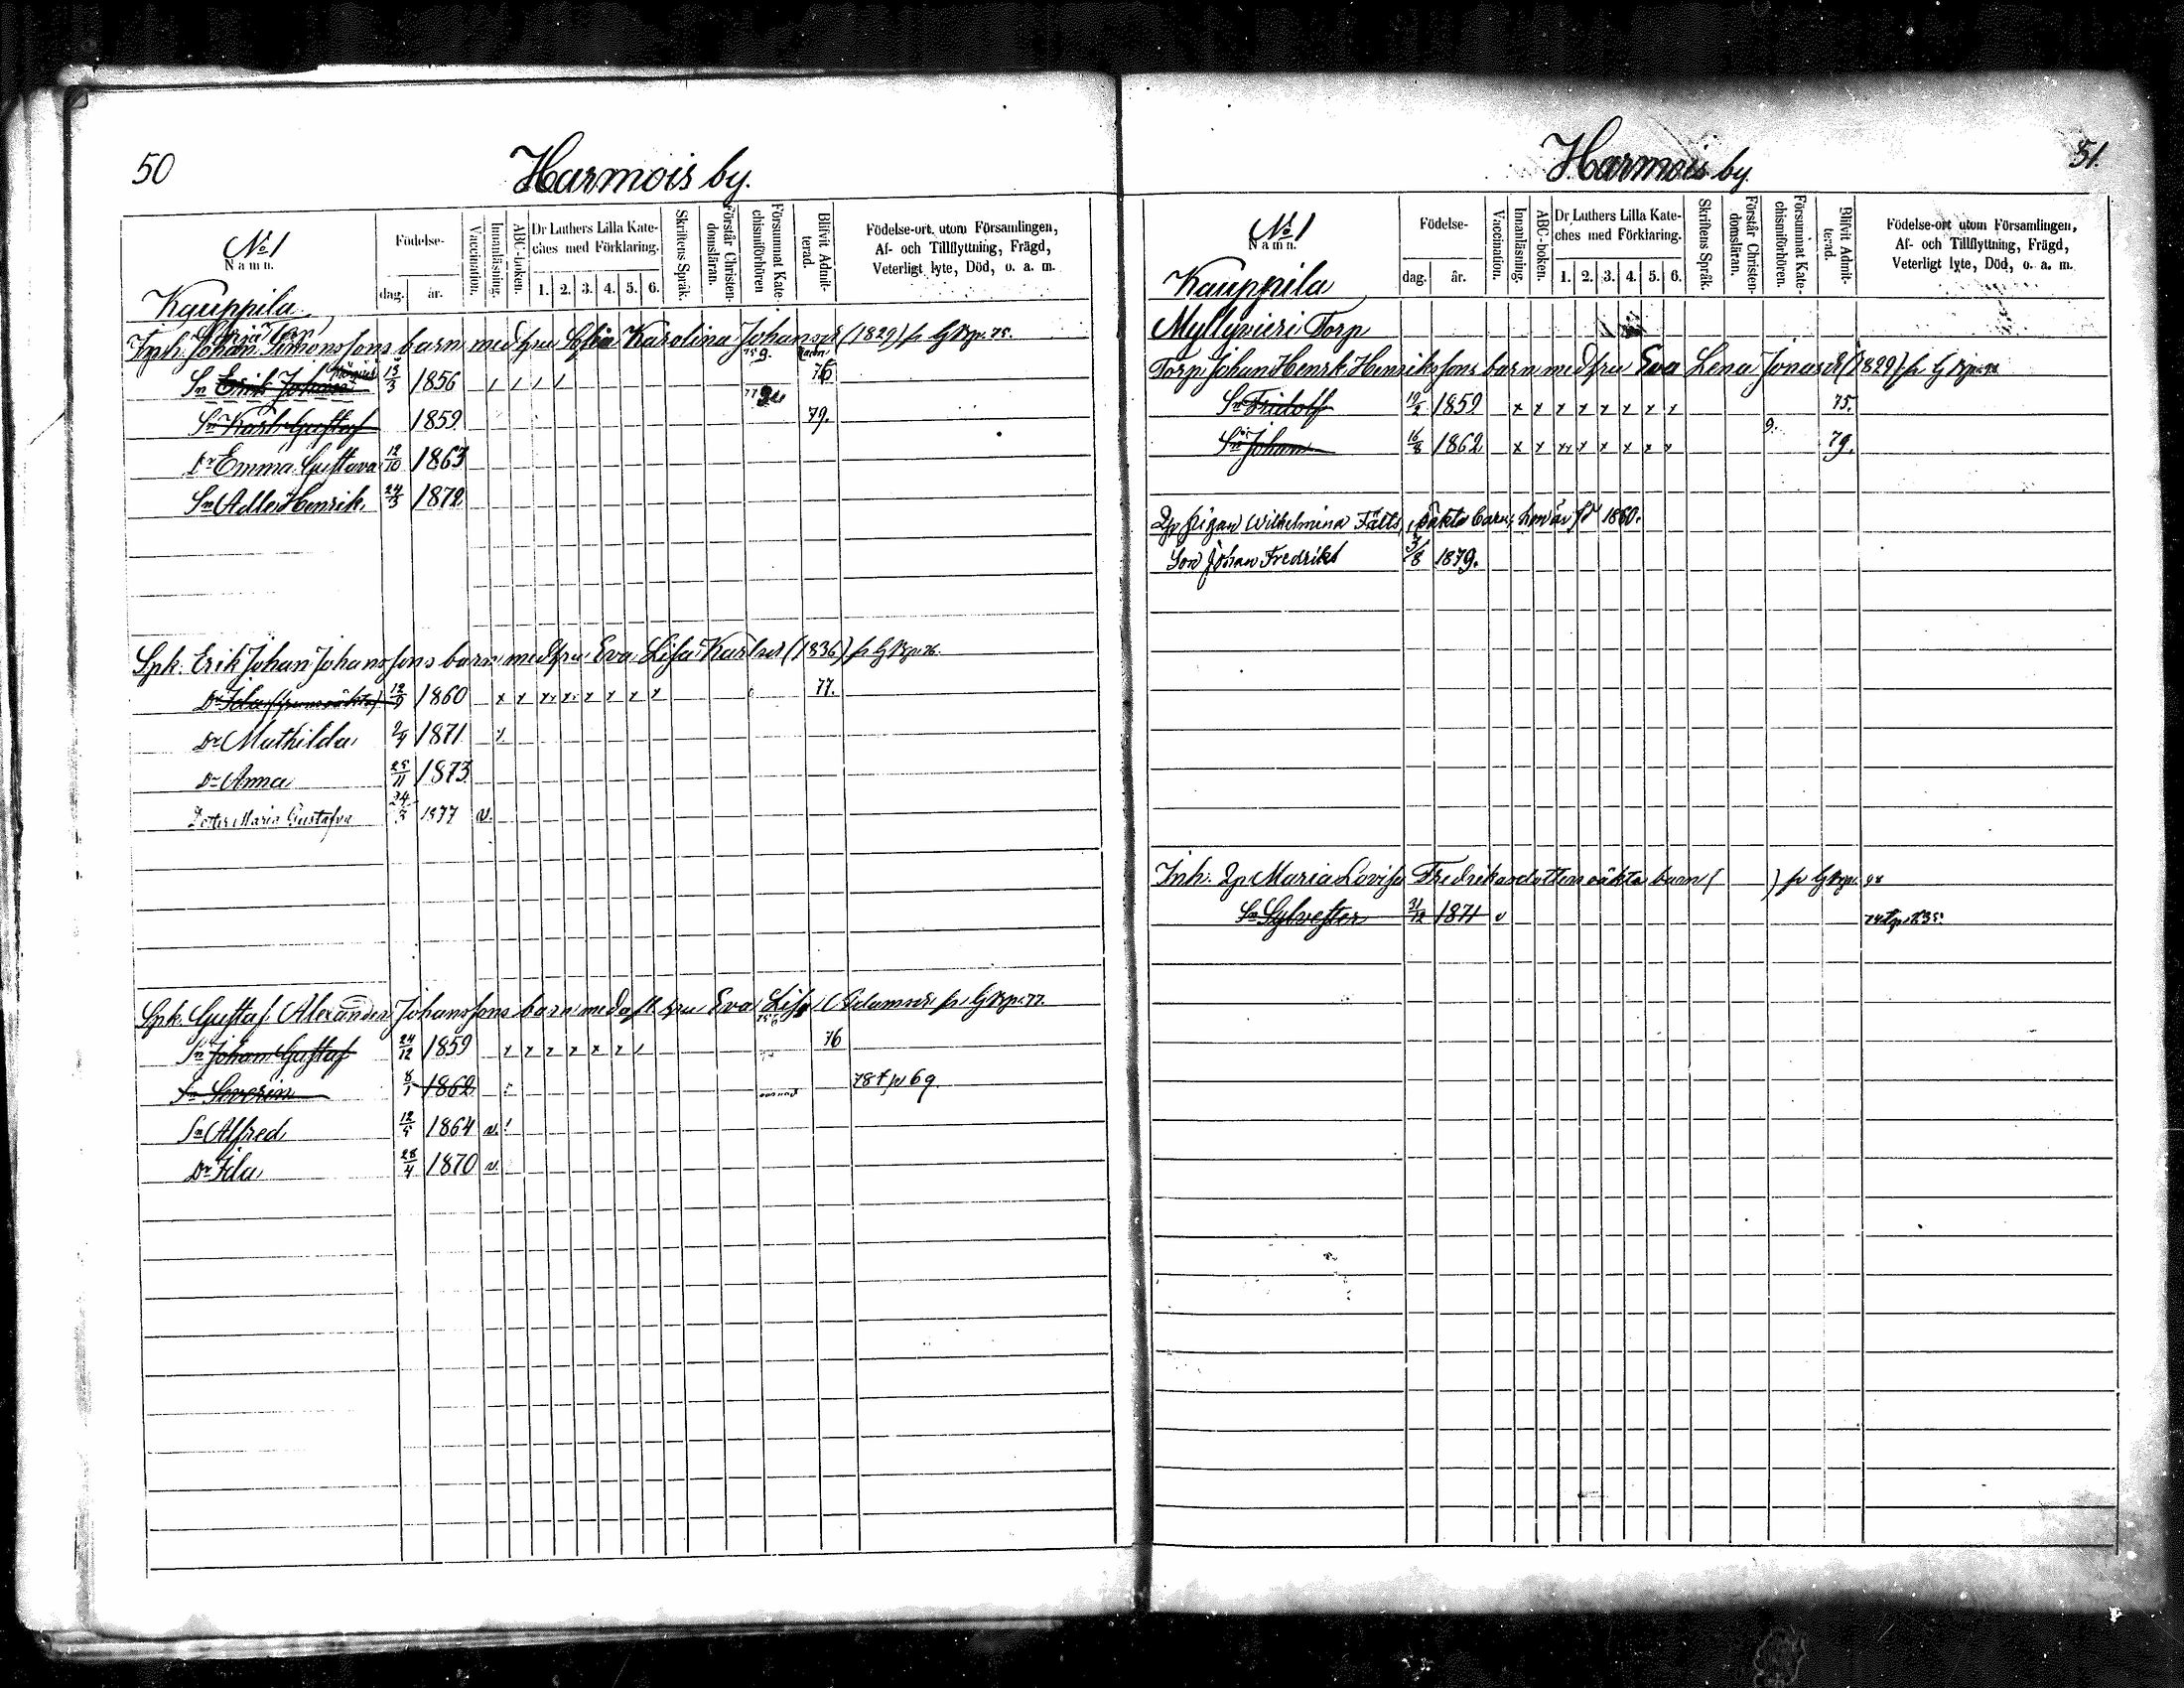 50
Harmois by.
No 1
Namn.
Födelse-
dag.
år.
Vaccination.
Innanläsning.
ABC-boken.
Dr Luthers Lilla Kate-
ches med Förklaring.
1. 2. 3. 4. 5. 6.
Skriftens Språk.
Förstår Christen-
domsläran.
Försummat Kate-
chismiförhören
Blifvit Admit-
terad.
Födelse-ort, utom Församlingen,
Af- och Tillflyttning, Frägd,
Veterligt lyte, Död, o. a. m.
Kauppila
Inh. Johan Simonssons barn med hru Sofia Karolina Johansdr (1829) se GBp. 75.
Sn Erik Johan 13/3 1856 76
Sn Karl Gustaf 1859 79.
Dr Emma Gustava 12/10 1863
Sn Adle Henrik 24/3 1872
Spk. Erik Johan Johanssons barn med hru Eva Lisa Karlsdr (1836) se GBp. 76.
Dr Ida 1860 x x x x x x x x 77.
Dr Mathilda 2/4 1871
Dr Anna 25/11 1873
Dotter Maria Gustafva 24/3 1877 v.
Spk. Gustaf Alexander Johanssons barn med hru Eva Lisa Adamsdr se GBp. 77.
Sn Johan Gustaf 24/12 1859 76
Sn Severin 8/1 1862 78 69.
Sn Alfred 12/5 1864 v.
Dr Ida 28/4 1870 v.
Harmois by.
51.
No 1
Namn.
Födelse-
dag.
år.
Vaccination.
Innanläsning.
ABC-boken.
Dr Luthers Lilla Kate-
ches med Förklaring.
1. 2. 3. 4. 5. 6.
Skriftens Språk.
Förstår Christen-
domsläran.
Försummat Kate-
chismiförhören.
Blifvit Admit-
terad.
Födelse-ort utom Församlingen,
Af- och Tillflyttning, Frägd,
Veterligt lyte, Död, o. a. m.
Kauppila
Myllynieri Torp
Torp. Johan Henrk Henrikssons barn med hru Eva Lena Jonasdr (1829) se GBp.
Sn Fridolf 19/2 1859 x x x x x x x x 75.
Sn Johan 16/8 1862 x x xx x x x x x 9. 79.
Qp pigan Wilhelmina Fälts oäkta barn, hon är fd 1860.
Son Johan Fredrik 3/8 1879.
Inh. Qp Maria Lovisa Fredriksdotters oäkta barn ( ) se GBp. 98
Sn Sylvester 31/12 1871 v